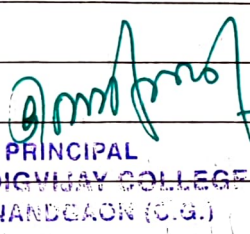 PRINCIPAL
DIGVIJAY COLLEGE
NANDGAON (C.G.)